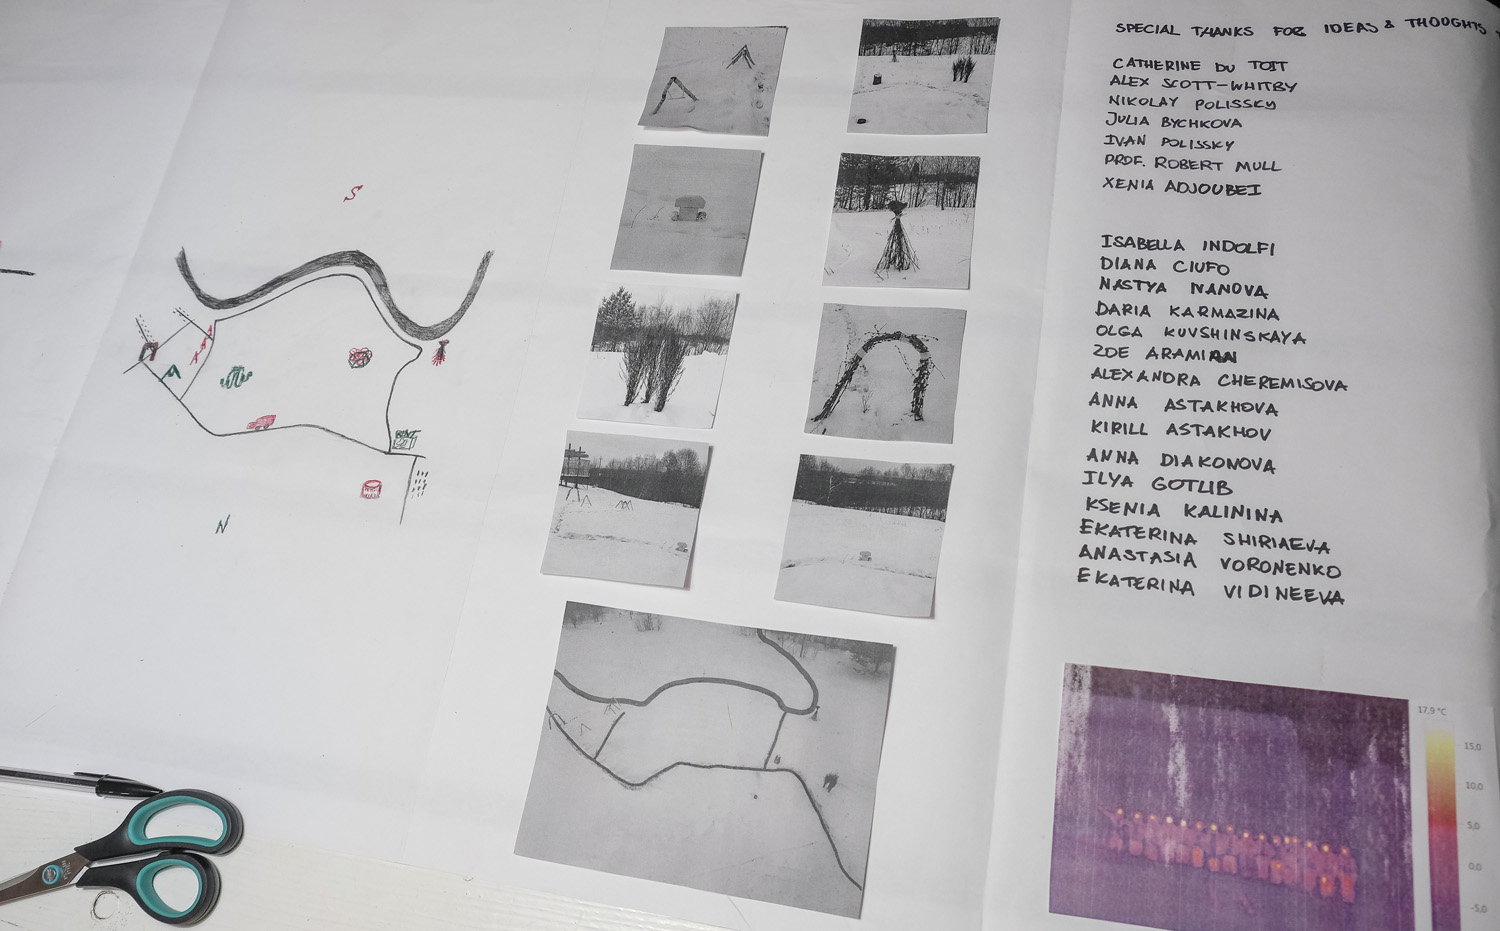 SPECIAL THANKS FOR IDEAS & THOUGHTS
CATHERINE DU TOIT
ALEX SCOTT-WHITBY
NIKOLAY POLISSKY
JULIA BYCHKOVA
IVAN POLISSKY
PROF. ROBERT MULL
XENIA ADJOUBEI
ISABELLA INDOLFI
DIANA CIUFO
NASTYA IVANOVA
DARIA KARMAZINA
OLGA KUVSHINSKAYA
ZOE ARAMIAN
ALEXANDRA CHEREMISOVA
ANNA ASTAKHOVA
KIRILL ASTAKHOV
ANNA DIAKONOVA
ILYA GOTLIB
KSENIA KALININA
EKATERINA SHIRIAEVA
ANASTASIA VORONENKO
EKATERINA VIDINEEVA
S
N
17,9 °C
15,0
10,0
5,0
0,0
-5,0